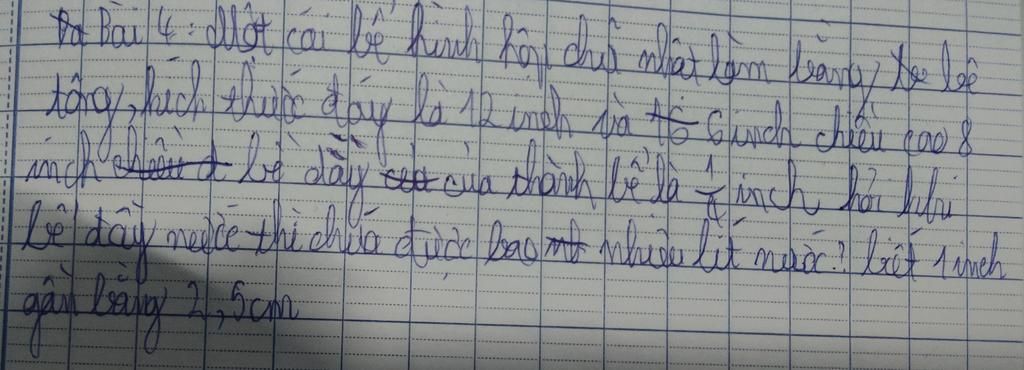 Bài 4: Một cái bể hình hộp chữ nhật làm bằng bê
tông, kích thước đáy là 12 inch và 6 inch chiều cao 8
inch bề dày của thành bể là 1/4 inch hỏi khi
bể đầy nước thì chứa được bao nhiêu lít nước? biết 1 inch
gần bằng 2,5cm